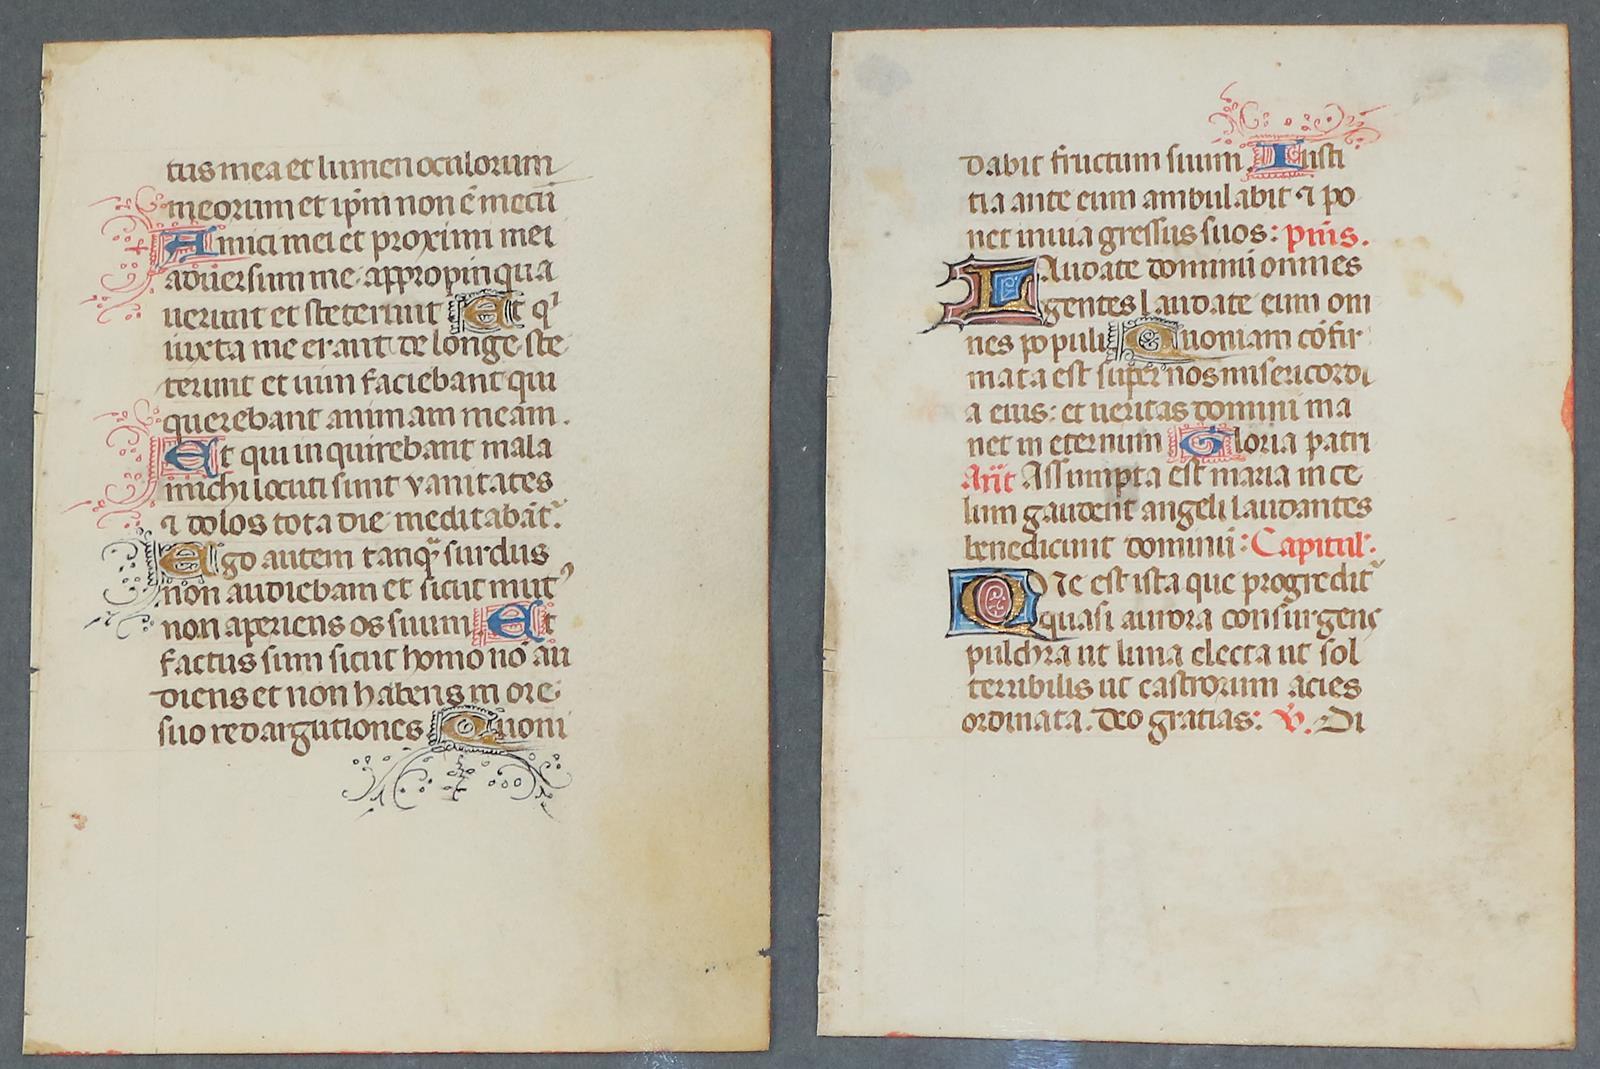 tus mea et lumen oculorum
meorum et ip̃m non ẽ mecũ
Amici mei et proximi mei
aduersum me appropinqua
uerunt et steterunt Et qͥ
iuxta me erant de longe ste
terunt et uim faciebant qui
querebant animam meam.
Et qui inquirebant mala
michi locuti sunt vanitates
⁊ dolos tota die meditabãt᷑.
Ego autem tanq̃ surdus
non audiebam et sicut mutꝰ
non aperiens os suum Et
factus sum sicut homo nõ au
diens et non habens in ore
suo redargutiones Quoni
dabit fructum suum Iusti
tia ante eum ambulabit ⁊ po
net in uia gressus suos: pũs.
Laudate dominũ omnes
gentes laudate eum om
nes populi Quoniam cõfir
mata est super nos misericordi
a eius: et ueritas domini ma
net in eternum Gloria patri
Añt Assumpta est maria in ce
lum gaudent angeli laudantes
benedicunt dominũ: Capitul̃.
Que est ista que progredit᷑
quasi aurora consurgens
pulchra ut luna electa ut sol
terribilis ut castrorum acies
ordinata. Deo gratias: ℣. Di